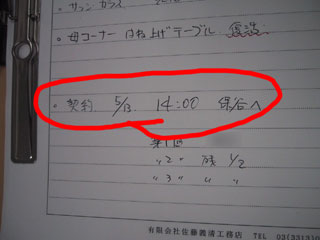 。サッシ ガラス
。母コーナー はね上げテーブル
。契約 5/13 14:00 保谷へ
第1回
〃2〃 残 1/2
〃3〃 〃 〃
有限会社佐藤義清工務店 TEL 03(3313)0